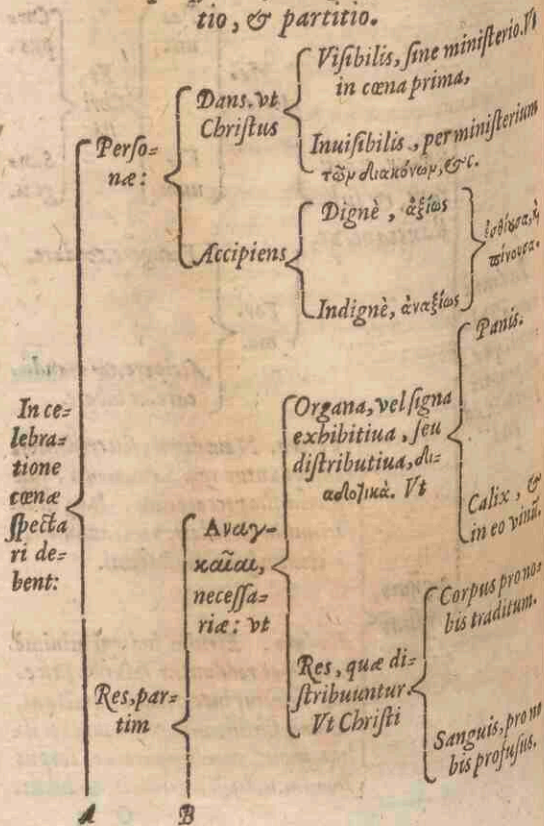 tio, & partitio.
Perſo=
næ:
Dans. vt
Chriſtus
Viſibilis, ſine miniſterio. Vt
in cœna prima,
Inuiſibilis, per miniſterium
τῶν διακόνων, &c.
Accipiens
Dignè, ἀξίως
Indignè, ἀναξίως
ἐσθίουσα, ἢ
πίνουσα.
In ce=
lebra=
tione
cœnæ
ſpecta
ri de=
bent:
Res, par=
tim
Αναγ-
καῖαι,
neceſſa=
riæ: vt
Organa, vel ſigna
exhibitiua, ſeu
diſtributiua, δι-
αδοτικὰ. Vt
Panis.
Calix, &
in eo vinũ.
Res, quæ di=
ſtribuuntur.
Vt Chriſti
Corpus pro no=
bis traditum.
Sanguis, pro no
bis profuſus.
A B